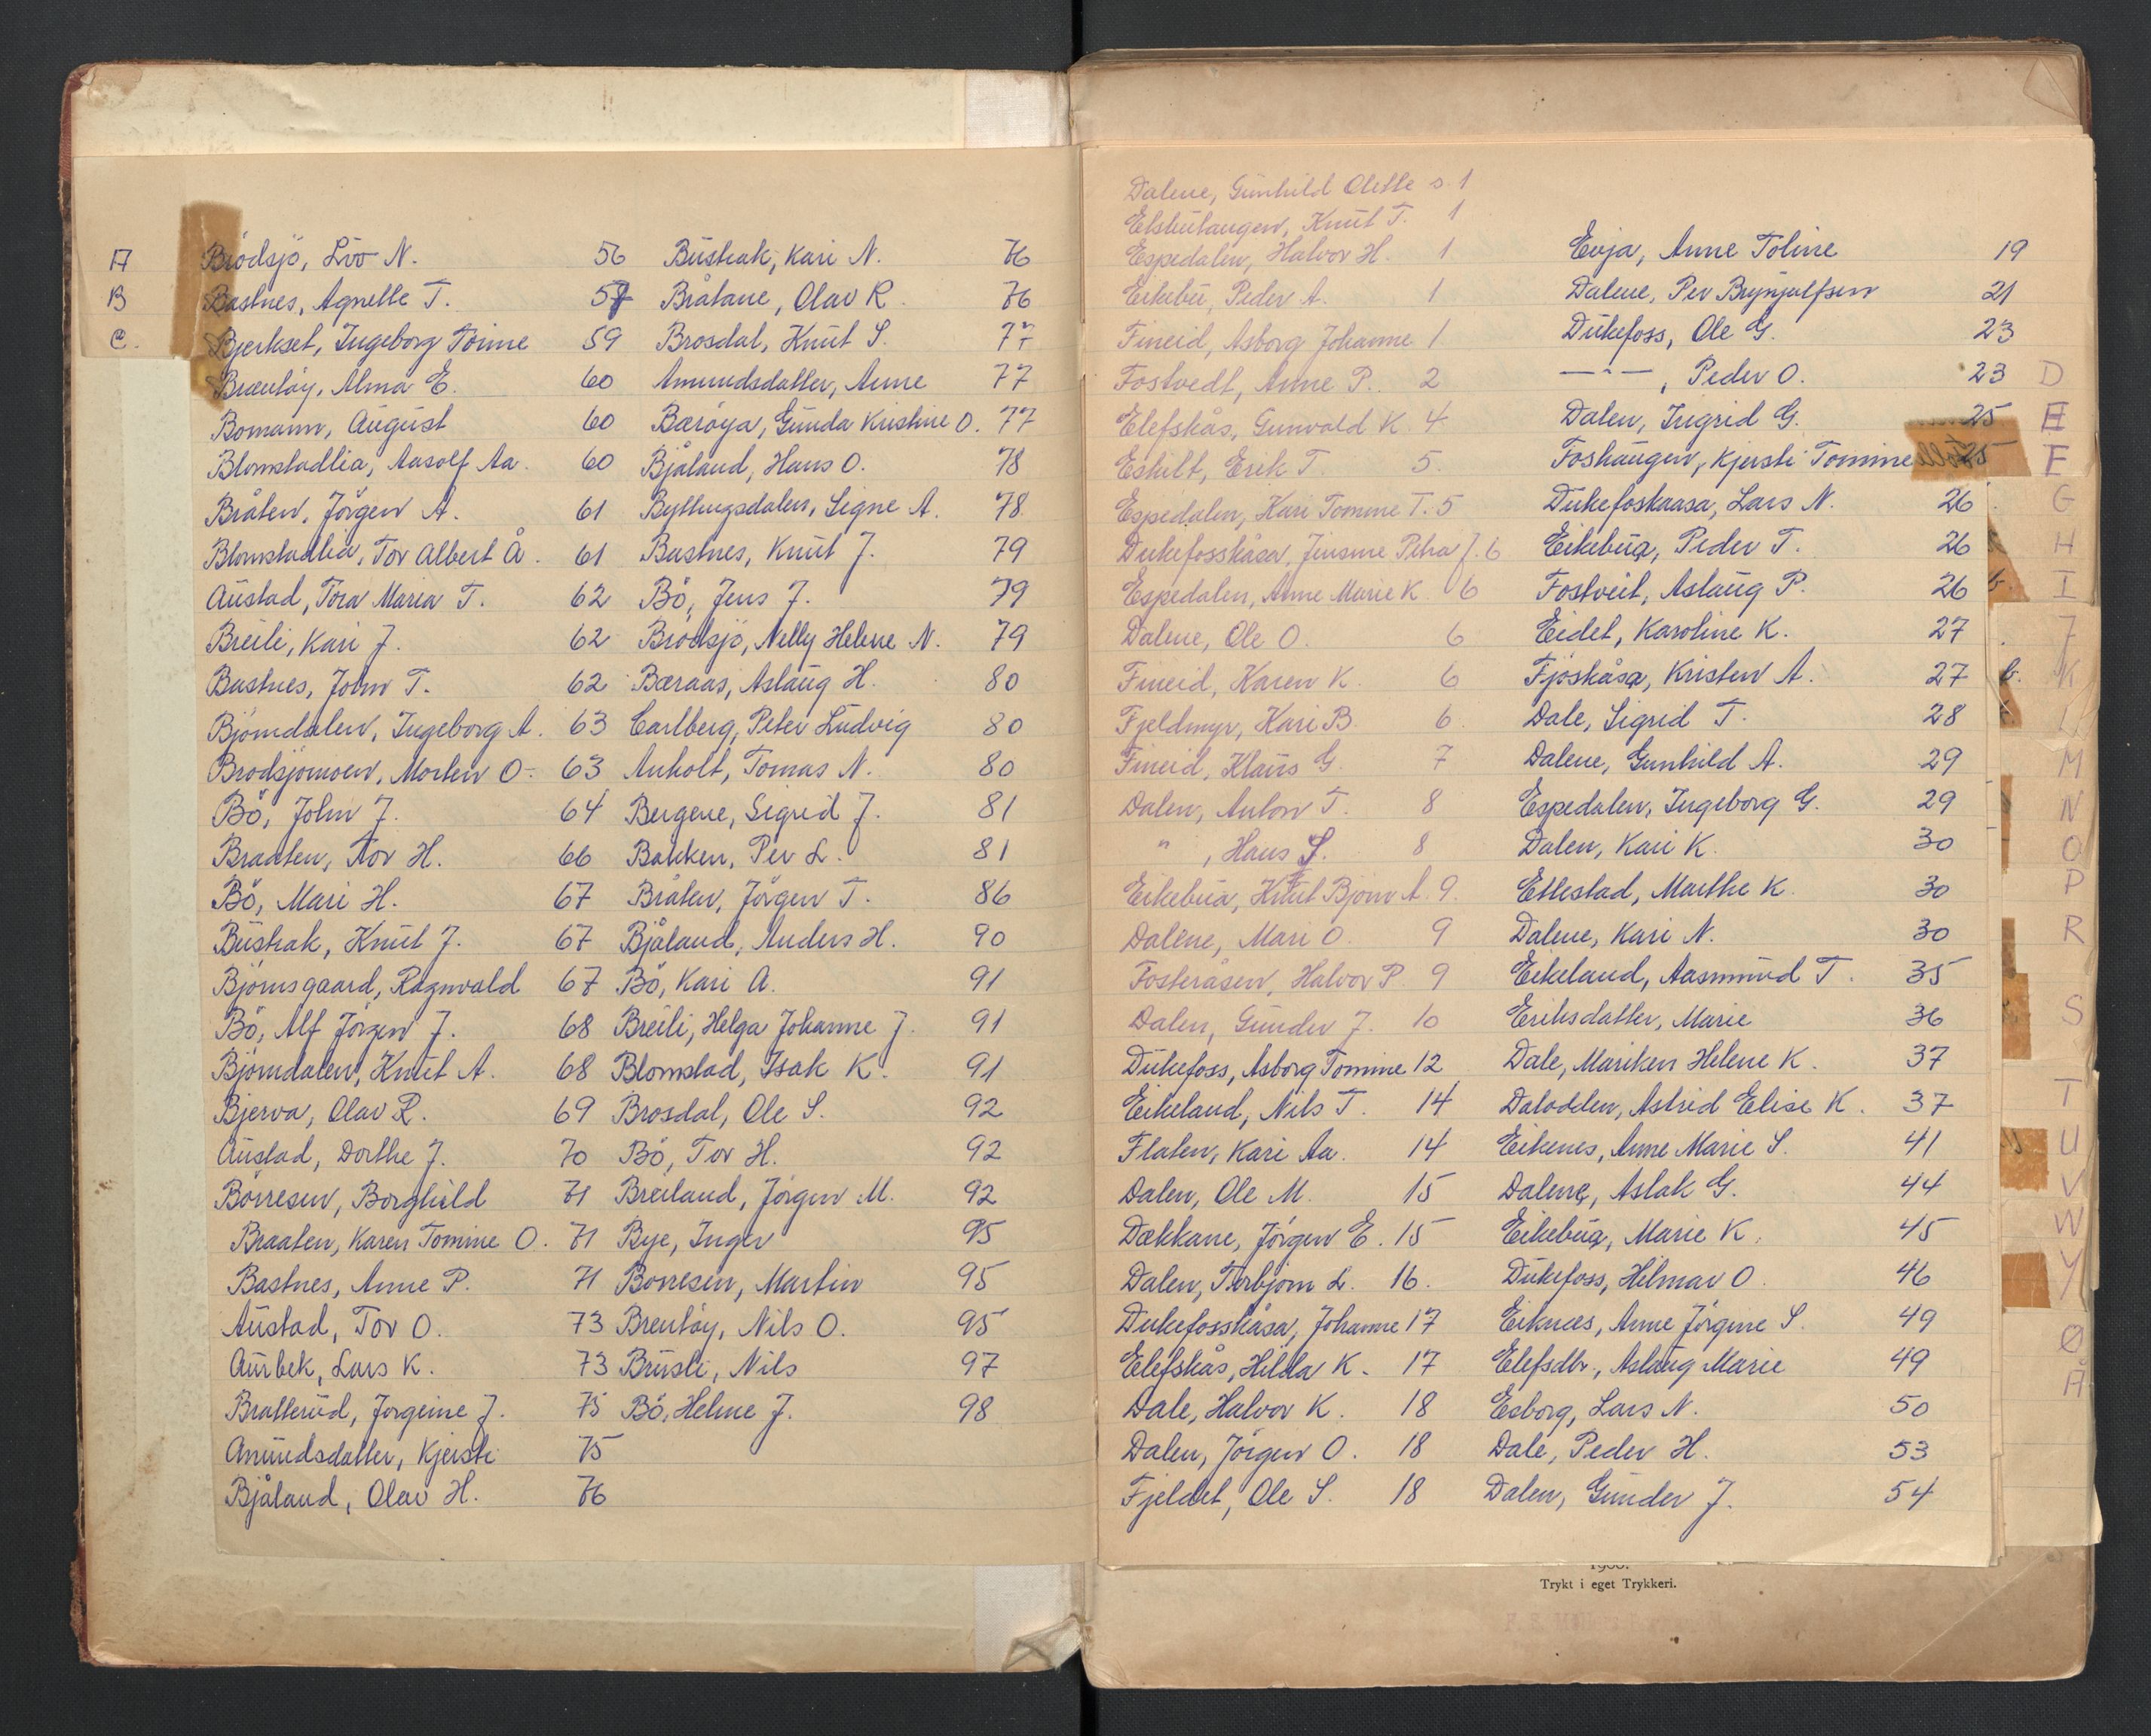 A
B
C.
Brödsjö, Liv N. 56
Bastnes, Agnethe T. 57
Bjerkset, Ingeborg Tomine 59
Brænløy, Alma E. 60
Bomann, August 60
Blomstadlia, Aasolf Aa. 60
Bråten, Jörgen A. 61
Blomstadlia, Tor Albert Å. 61
Austad, Tora Maria T. 62
Breili, Kari J. 62
Bastnes, John T. 62
Björndalen, Ingeborg A. 63
Brodsjömoen, Morten O. 63
Bö, John J. 64
Braaten, Tor H. 66
Bö, Mari H. 67
Bustrak, Knut J. 67
Björnsgaard, Ragnvald 67
Bö, Alf Jörgen J. 68
Björndalen, Knut A. 68
Bjerva, Olav R. 69
Austad, Dorthe J. 70
Börresen, Borghild 71
Braaten, Karen Tomine O. 71
Bastnes, Anne P. 71
Austad, Tov O. 73
Aurbek, Lars K. 73
Bratterud, Jorgeine J. 75
Amundsdatter, Kjersti 75
Bjåland, Olav H. 76
Bustrak, Kari N. 76
Bråtane, Olav R. 76
Brosdal, Knut S. 77
Amundsdatter, Anne 77
Bæröya, Gunda Kristine O. 77
Bjåland, Hans O. 78
Byttingsdalen, Signe A. 78
Bastnes, Knut J. 79
Bö, Jens J. 79
Brödsjö, Nelly Helene N. 79
Bæraas, Aslaug H. 80
Carlberg, Peter Ludvig 80
Anholt, Tomas N. 80
Bergene, Sigrid J. 81
Bakken, Per L. 81
Bråten, Jörgen T. 86
Bjåland, Anders H. 90
Bö, Kari A. 91
Breili, Helga Johanne J. 91
Blomstad, Isak K. 91
Brosdal, Ole S. 92
Bö, Tor H. 92
Breiland, Jörgen M. 92
Bye, Inger 95
Borresen, Martin 95
Brenløy, Nils O. 95
Brusli, Nils 97
Bö, Helene J. 98
Dalene, Gunhild Olette s. 1
Elshulaugen, Knut T. 1
Espedalen, Halvor H. 1
Eikebu, Peder A. 1
Fineid, Asborg Johanne 1
Fostvedt, Anne P. 2
Elefskås, Gunvald K. 4
Eskilt, Erik T. 5.
Espedalen, Kari Tomine T. 5
Dukefosskåsa, Jensine Petra J. 6
Espedalen, Anne Marie K. 6
Dalene, Ole O. 6
Fineid, Karen K. 6
Fjeldmyr, Kari B. 6.
Fineid, Klaus G. 7
Dalen, Anton T. 8
" , Hans S. 8
Eikebua, Knut Björn A. 9.
Dalene, Mari O. 9
Fosteråsen, Halvor P. 9
Dalen, Gunder J. 10
Dukefoss, Asborg Tomine 12
Eikeland, Nils T. 14
Flaten, Kari Aa. 14
Dalen, Ole M. 15
Dækkane, Jörgen E. 15
Dalen, Torbjörn L. 16.
Dukefosskåsa, Johanne 17
Elefskås, Hilda K. 17
Dale, Halvor K. 18
Dalen, Jörgen O. 18
Fjeldet, Ole S. 18
Evja, Anne Toline 19
Dalene, Per Brynjulfsen 21
Dukefoss, Ole G. 23
— " — , Peder O. 23
Dalen, Ingrid G. 25
Foshaugen, Kjersti Tomine 25
Dukefoskaasa, Lars N. 26
Eikebua, Peder T. 26
Fostveit, Aslaug P. 26
Eidet, Karoline K. 27
Fjoskåsa, Kristen A. 27
Dale, Sigrid T. 28
Dalene, Gunhild A. 29
Espedalen, Ingeborg G. 29
Dalen, Kari K. 30
Ettestad, Marthe K. 30
Dalene, Kari N. 30
Eikeland, Aasmund T. 35
Eriksdatter, Marie 36
Dale, Mariken Helene K. 37
Dalodden, Astrid Elise K. 37
Eikenes, Anne Marie S. 41
Dalene, Aslak G. 44
Eikebua, Marie K. 45
Dukefoss, Hilmar O. 46
Eiknees, Anne Jörgine S. 49
Elefsdtr., Aslaug Marie 49
Esborg, Lars N. 50
Dale, Peder H. 53
Dalen, Gunder J. 54
D
E
F
G
H
I
J
K
L
M
N
O
P
R
S
T
U
V
W
Y
Ø
Å
Trykt i eget Trykkeri.